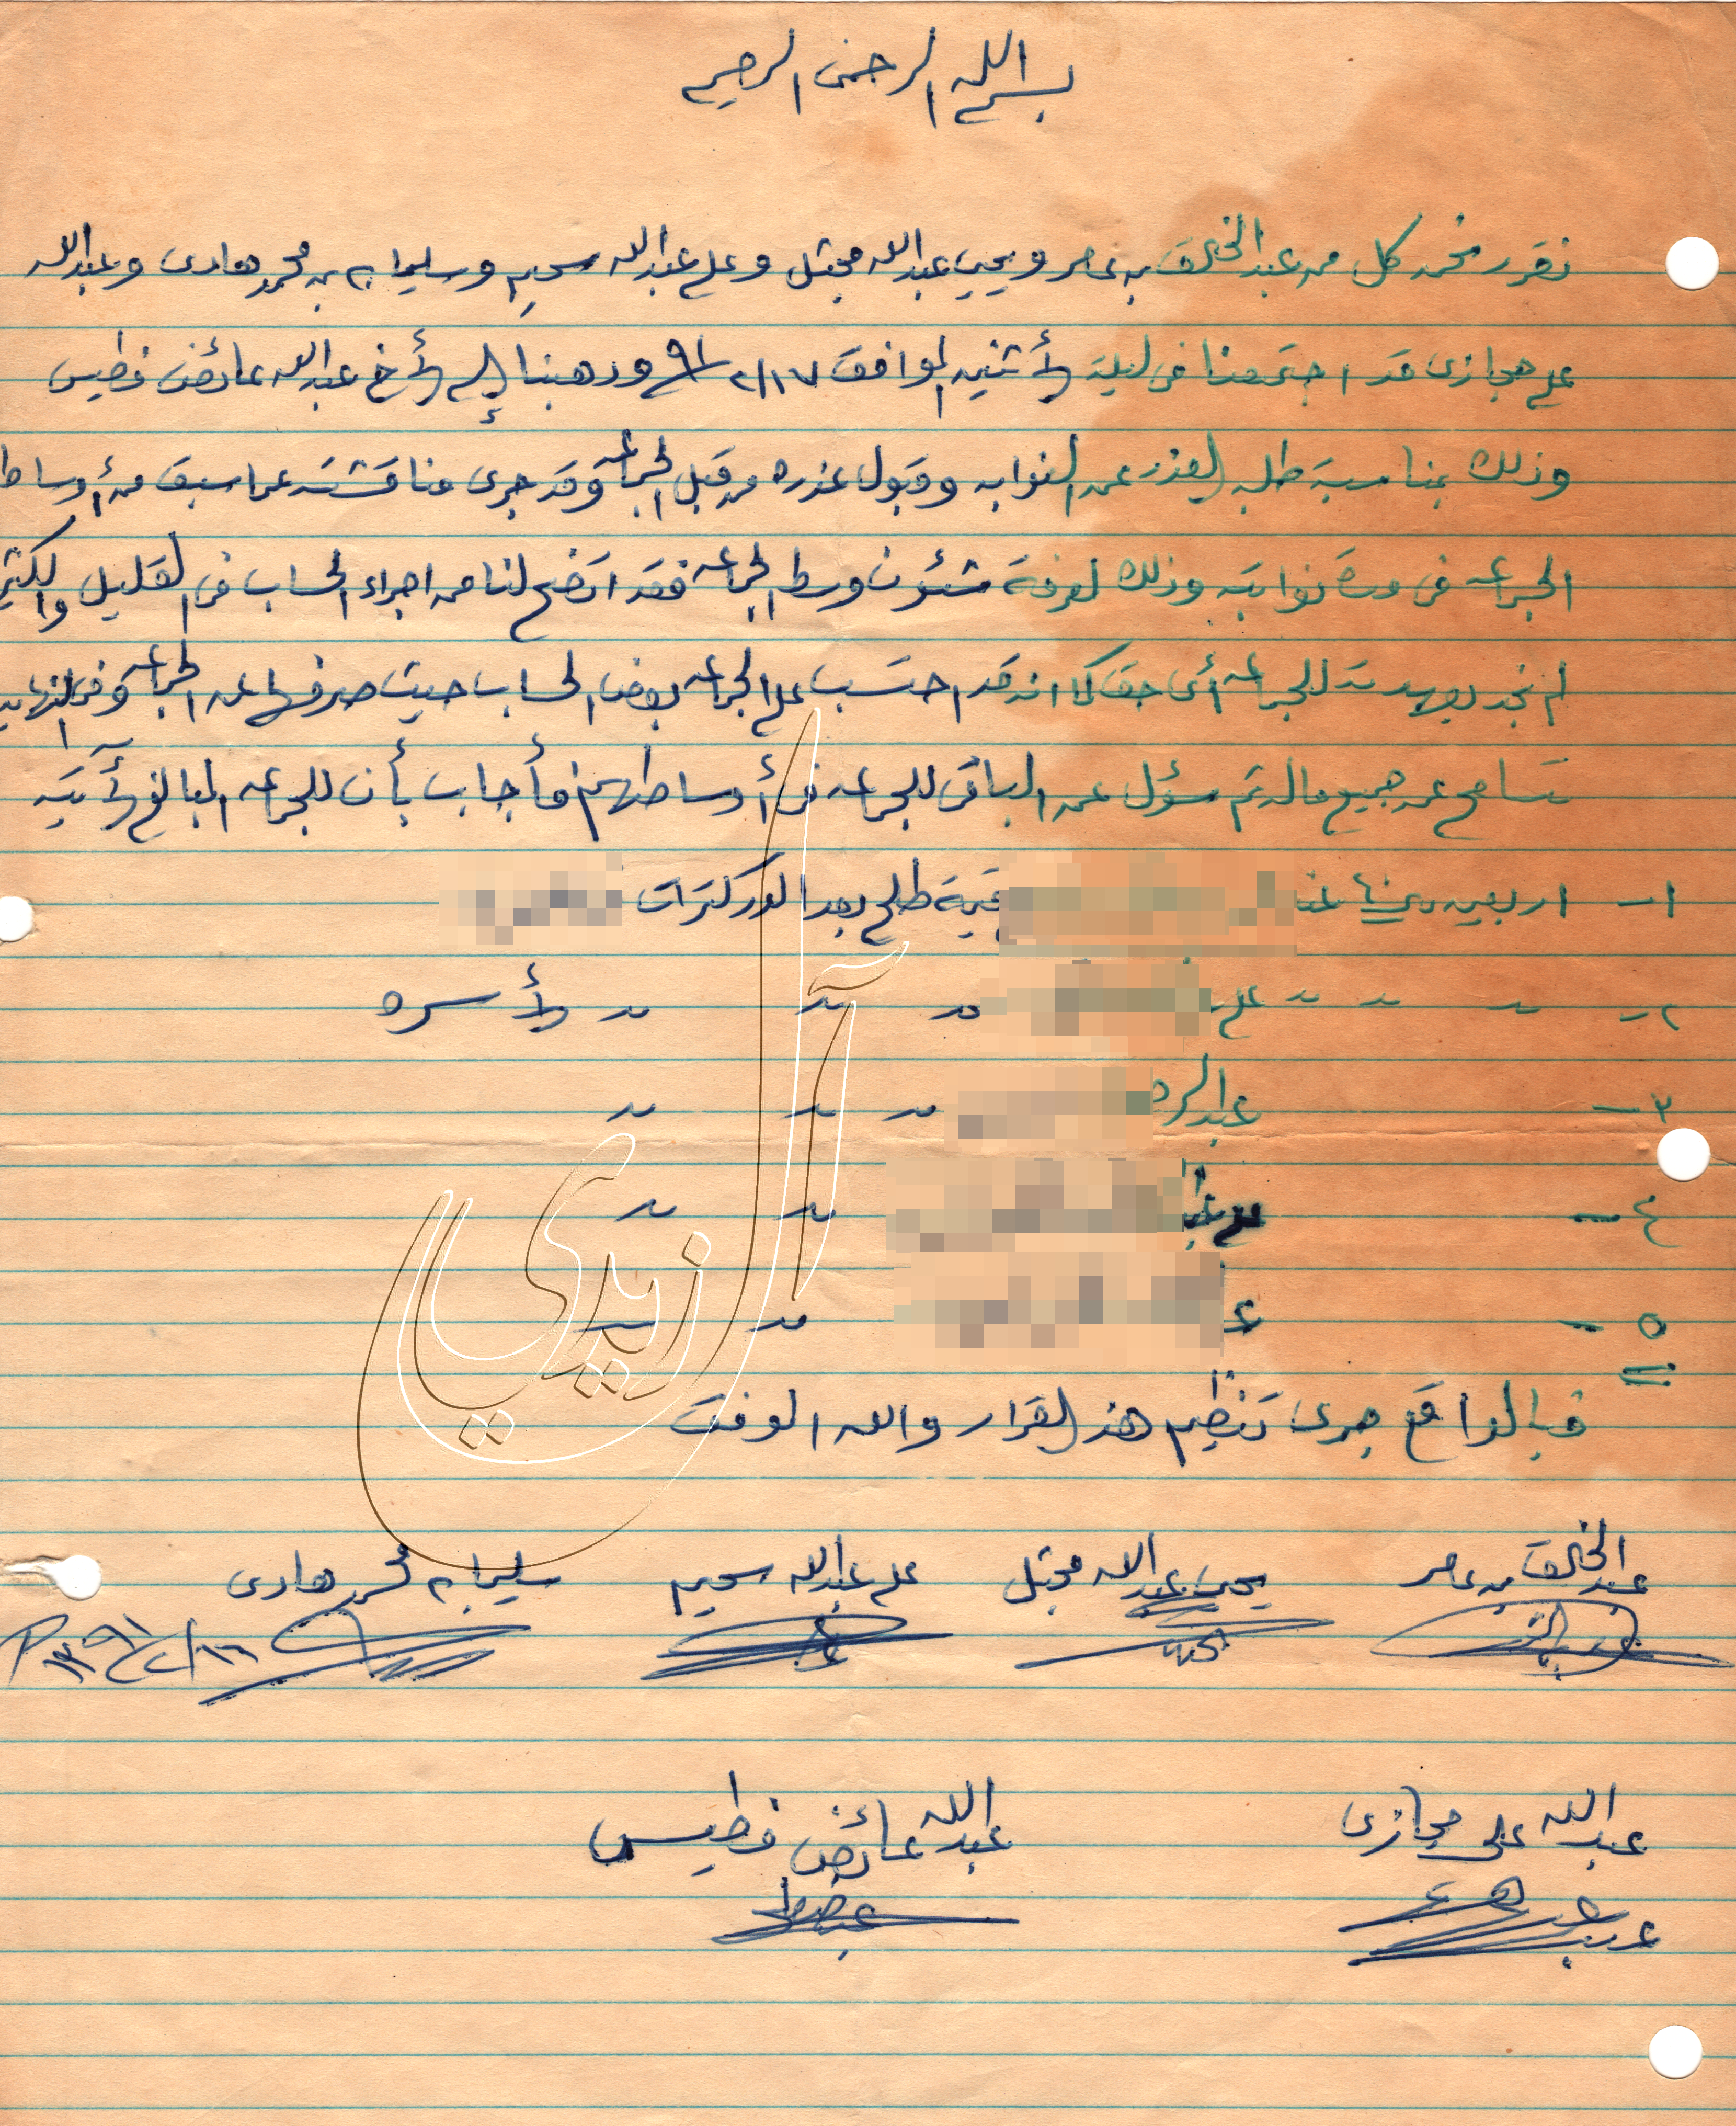 بسم الله الرحمن الرحيم
نقرر نحن كل من عبد الخالق بن عامر ويحيى عبدالله مجثل وعلي عبدالله سحيم وسليمان بن محمد هادى وعبدالله
علي حجازى قد اجتمعنا في ليلة الأثنين الموافق ٢/١٧/٩١ وذهبنا إلى الأخ عبدالله عائض فطيس
وذلك بمناسبة طلب العذر عن النوابه وقبول عذره من قبل الجماعه وقد جرى مناقشته عما سبق من أوساط
الجماعه في مدة نوابته وذلك لمعرفة شئون وسط الجماعه فقد اتضح لنا من اجراء الحساب في القليل والكثير
لم نجد بعهدته للجماعه أي حق كما انه قد احتسب على الجماعه بعض الحساب حيث صرفها عن الجماعه وفي النهاية
تسامح عن جميع ماله ثم سؤل عن الباقي للجماعه في أوساطهم فأجاب بأن للجماعه المبالغ الأتية
١- اربعين ريال عند قيمة طلح بعد الدركترات
٢- " " " على " " " الأسره
٣- عبدالر " " "
٤- على " "
٥- ع " "
فبالواقع جرى تنظيم هذ القرار والله الموفق
عبد الخالق بن عامر يحيى عبدالله مجثل علي عبدالله سحيم سليمان محمد هادى
١٣٩١/٢/١٦
عبدالله علي حجازى عبدالله عائض فطيس
آل زيدي